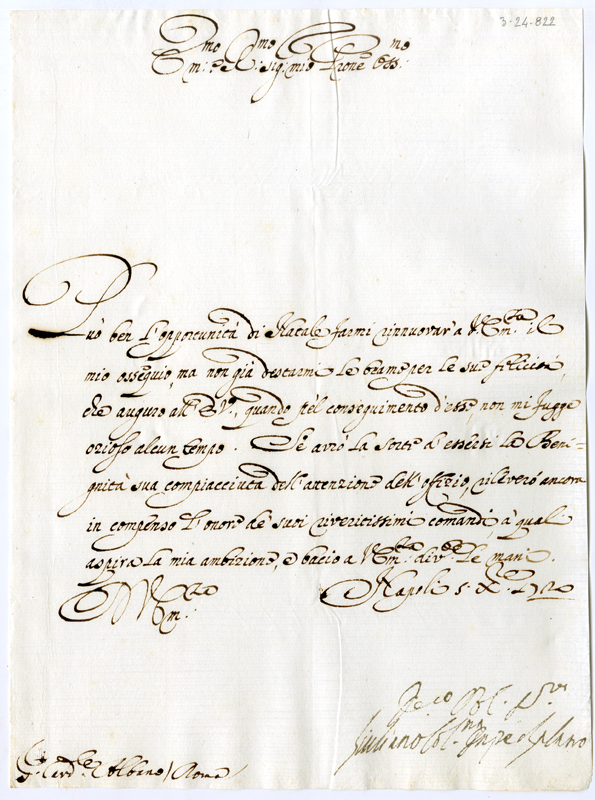 3-24-822
Emo. e Rmo. Sig. mio Prone Oss.mo
Può ben l'opportunità di Natale farmi rinnuovar' a V. Em.za il
mio ossequio, ma non già destarmi le brame per le sue felicità,
che auguro all' E. V., quando p el conseguimento d'esse non mi fugge
orioso alcun tempo. Se avrò la sorte d'essersi la Beni-
gnità sua compiacciuta dell'attenzione dell'offizio, rileverò ancora
in compenso l'onore de' suoi riveritissimi comandi, à quali
aspira la mia ambizione, e bacio a V. Em.za div.te le mani.
Di V. Em.za Napoli 5. Xbre 1720
Giuliano
Sr. Card.le Albano / Roma